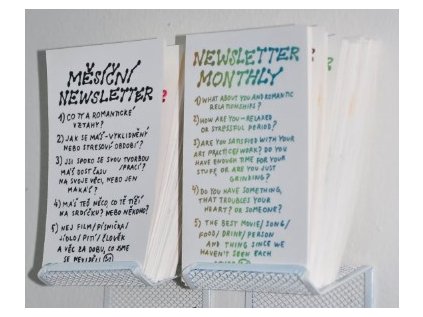 MĚSÍČNÍ
NEWSLETTER
1) CO TY A ROMANTICKÉ
VZTAHY?
2) JAK SE MÁŠ - VYKLIDNĚNÍ
NEBO STRESOVÉ OBDOBÍ?
3) JSI SPOKO SE SVOU TVORBOU
/PRACÍ?
MÁŠ DOST ČASU
NA SVOJE VĚCI, NEBO JEN
MAKÁŠ?
4) MÁŠ TEĎ NĚCO, CO TĚ TÍŽÍ
NA SRDÍČKU? NEBO NĚKOHO?
5) NEJ FILM/PÍSNIČKA/
JÍDLO/PITÍ/ČLOVĚK
A VĚC ZA DOBU, CO JSME
SE NEVIDĚLI
NEWSLETTER
MONTHLY
1) WHAT ABOUT YOU AND ROMANTIC
RELATIONSHIPS?
2) HOW ARE YOU - RELAXED
OR STRESSFUL PERIOD?
3) ARE YOU SATISFIED WITH YOUR
ART PRACTICE/WORK? DO YOU
HAVE ENOUGH TIME FOR YOUR
STUFF OR ARE YOU JUST
GRINDING?
4) DO YOU HAVE SOMETHING,
THAT TROUBLES YOUR
HEART? OR SOMEONE?
5) THE BEST MOVIE/SONG/
FOOD/DRINK/PERSON
AND THING SINCE WE
HAVEN'T SEEN EACH